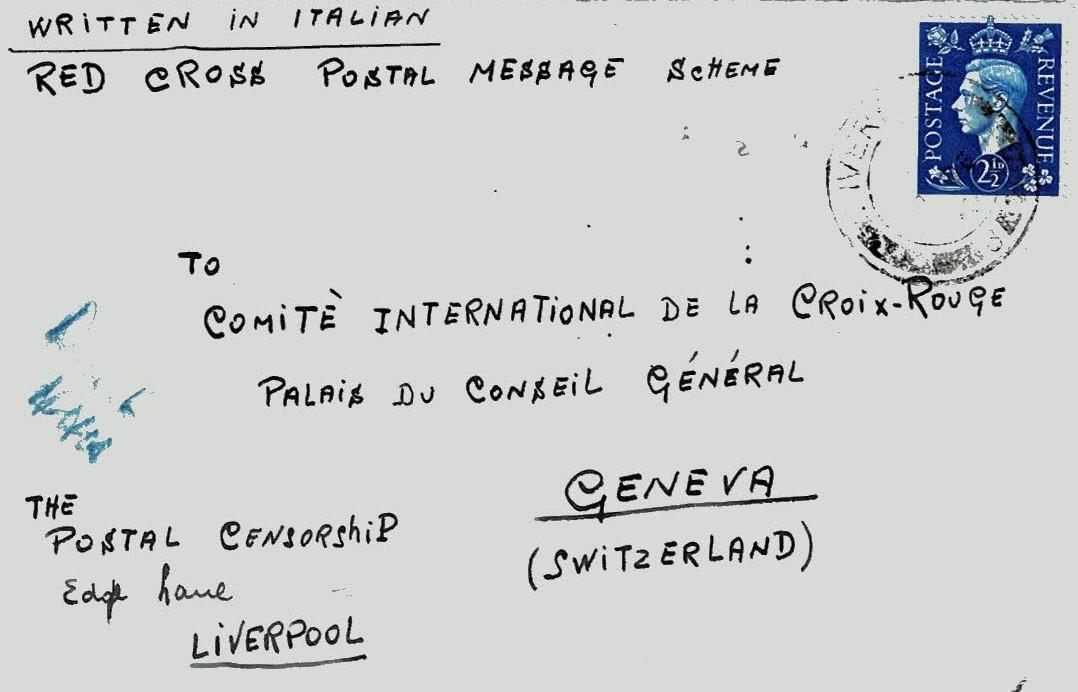 WRITTEN IN ITALIAN
RED CROSS POSTAL MESSAGE SCHEME
POSTAGE REVENUE
2½D
TO
COMITÈ INTERNATIONAL DE LA CROIX-ROUGE
PALAIS DU CONSEIL GÉNÉRAL
GENEVA
(SWITZERLAND)
THE
POSTAL CENSORSHIP
Edge Lane
LIVERPOOL